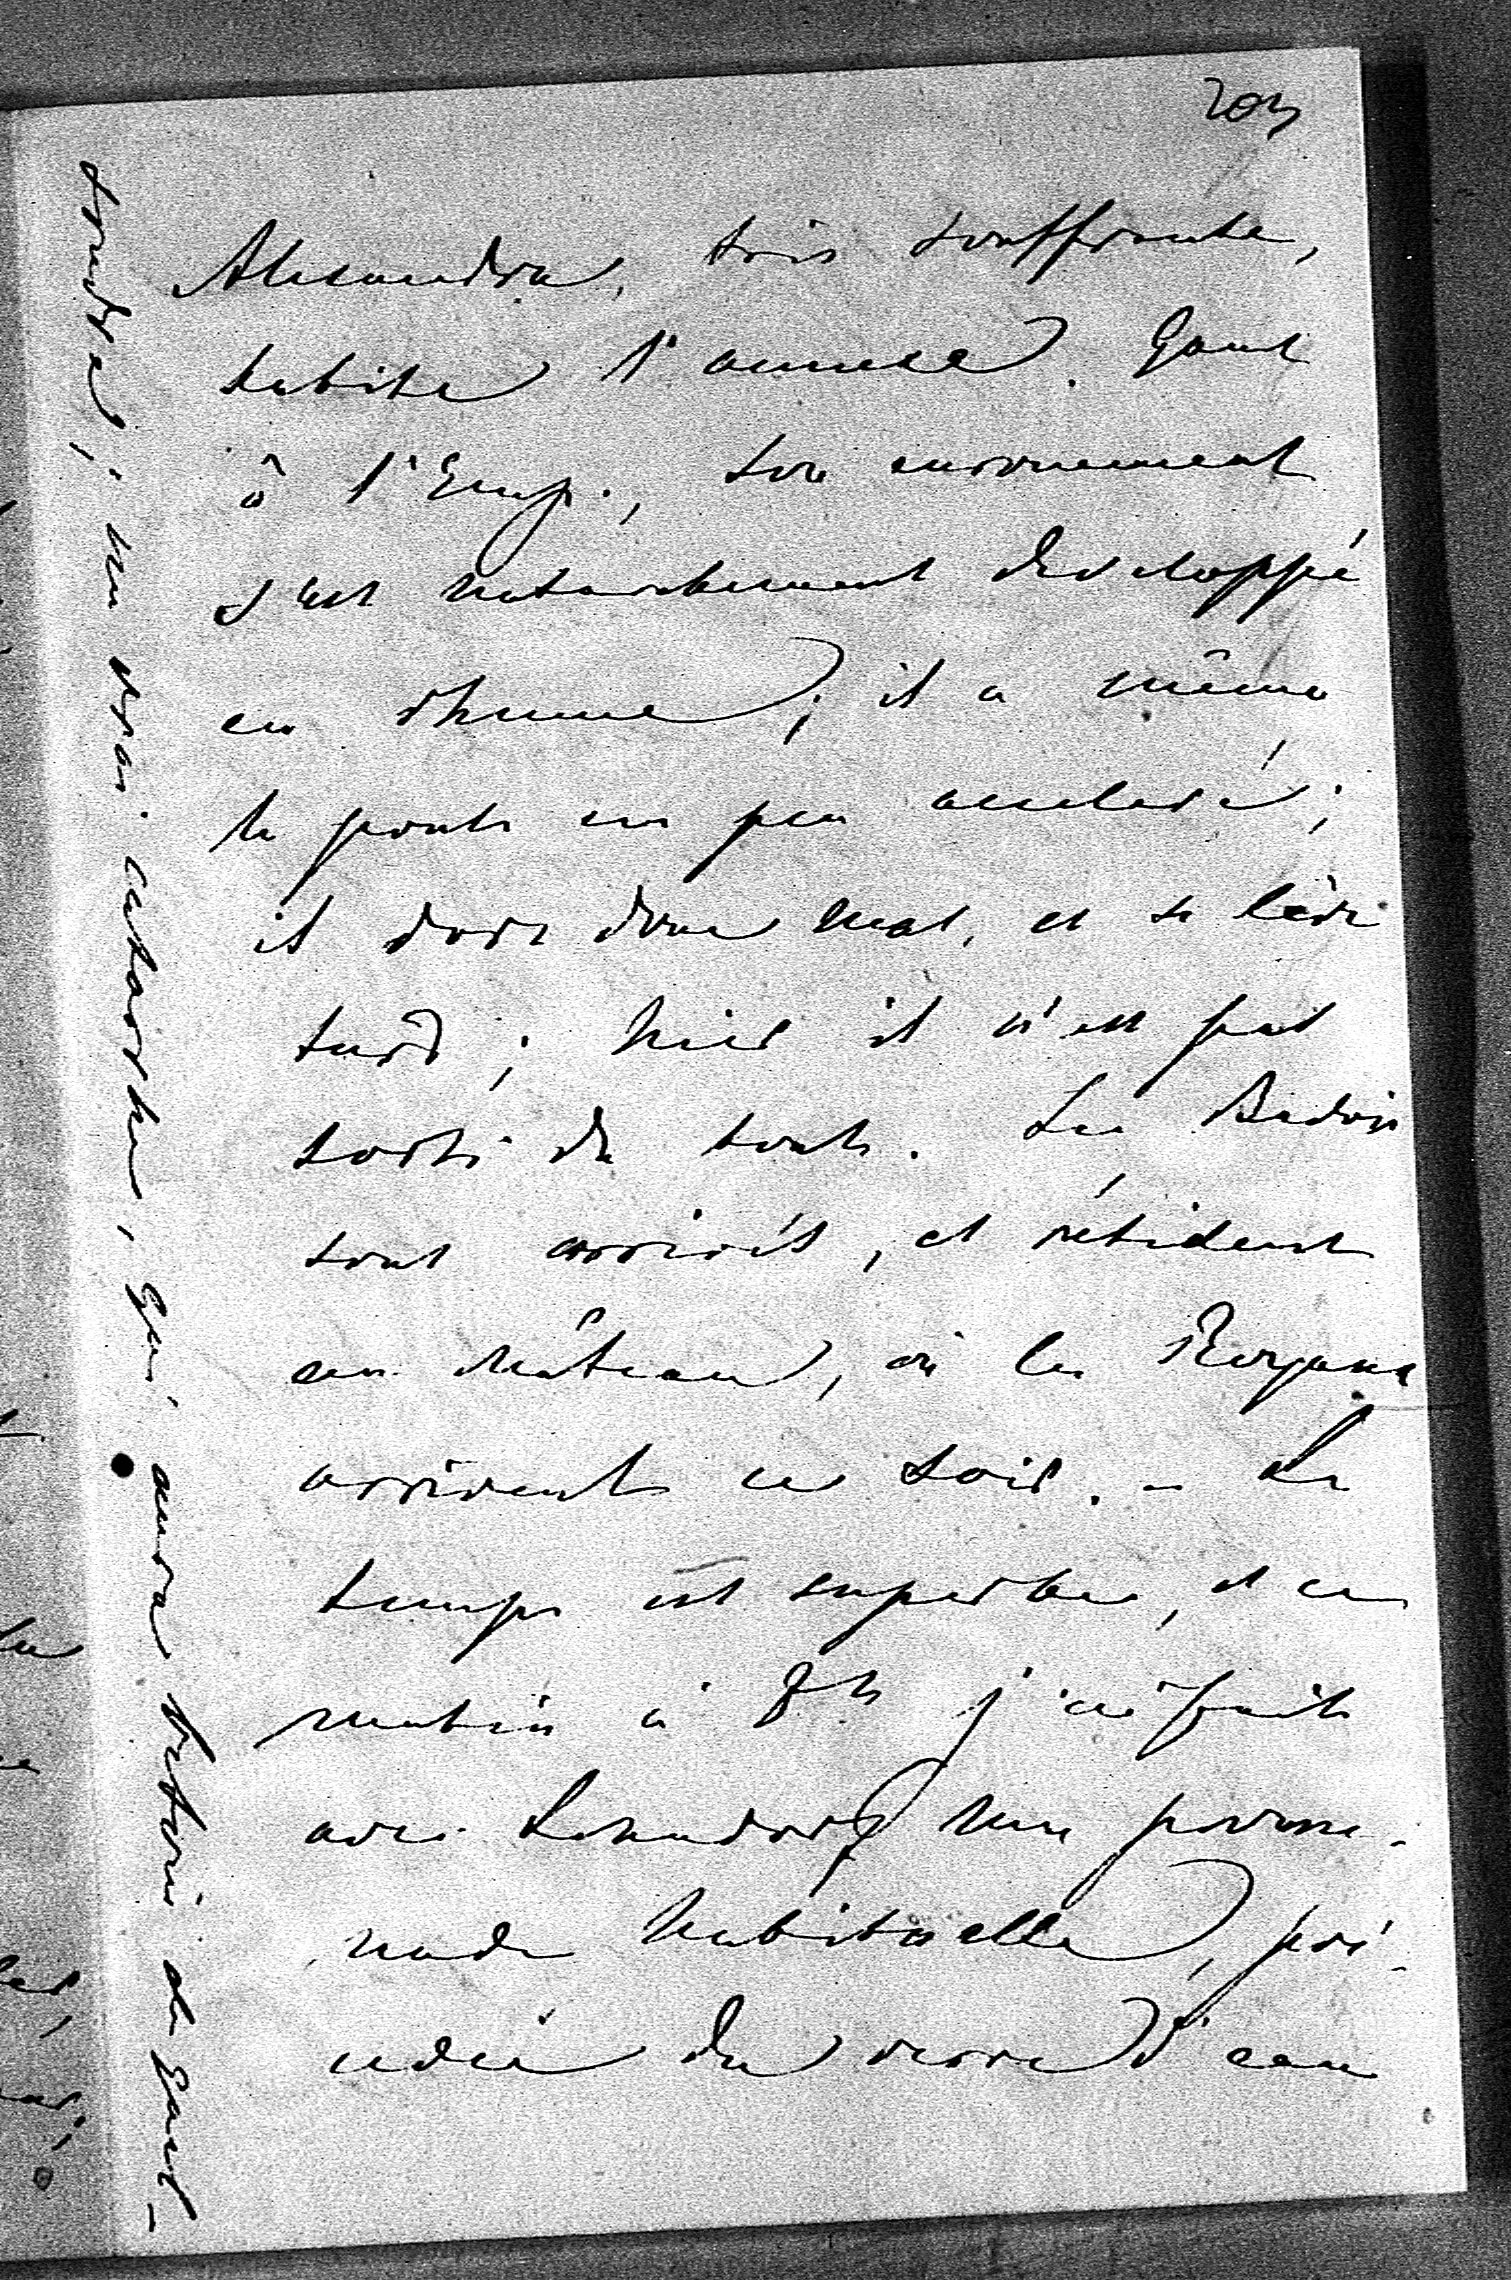 203
Alexandra, très souffrante,
habite l'annexe. Quant
à l'Emp., son enrouement
s'est naturellement développé
en rhume; il a même
le pouls un peu accéléré;
il dort donc mal, et se lève
tard; hier il n'est pas
sorti du tout. Les Badois
sont arrivés, et résident
au château, où les Royaux
arrivent ce soir. - Le
temps est superbe, et ce
matin à 8h j'ai fait
avec Lehndorff une prome-
nade habituelle, pré-
cédée du verre d'eau
un vrai catarrhe, qui aura besoin de quel-